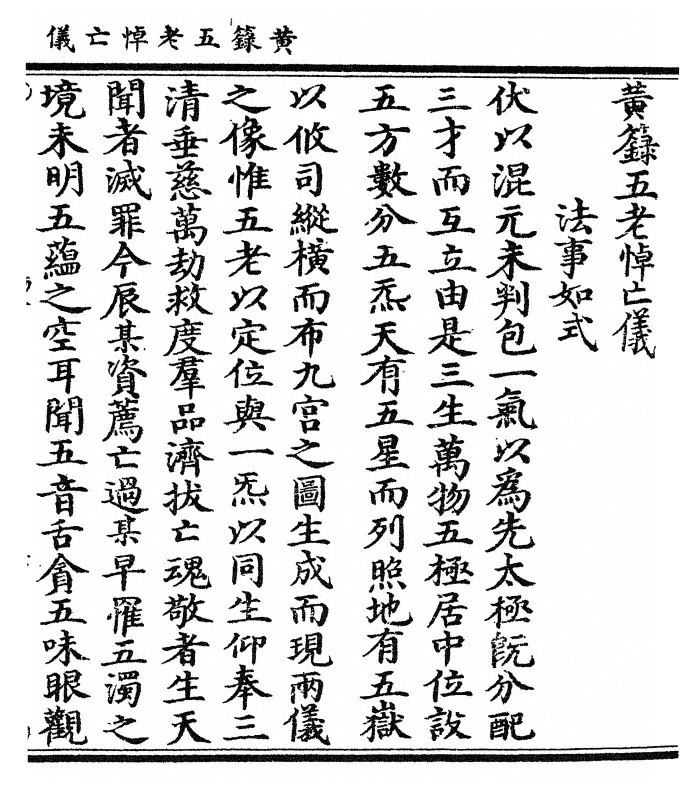 黃籙五老悼亡儀
黃籙五老悼亡儀
法事如式
伏以混元未判包一氣以爲先太極旣分配
三才而互立由是三生萬物五極居中位設
五方數分五炁天有五星而列照地有五嶽
以攸司縱橫而布九宮之圖生成而現兩儀
之像惟五老以定位與一炁以同生仰奉三
清垂慈萬劫救度羣品濟拔亡魂敬者生天
聞者滅罪今辰某資薦亡過某早罹五濁之
境未明五蘊之空耳聞五音舌貪五味眼觀